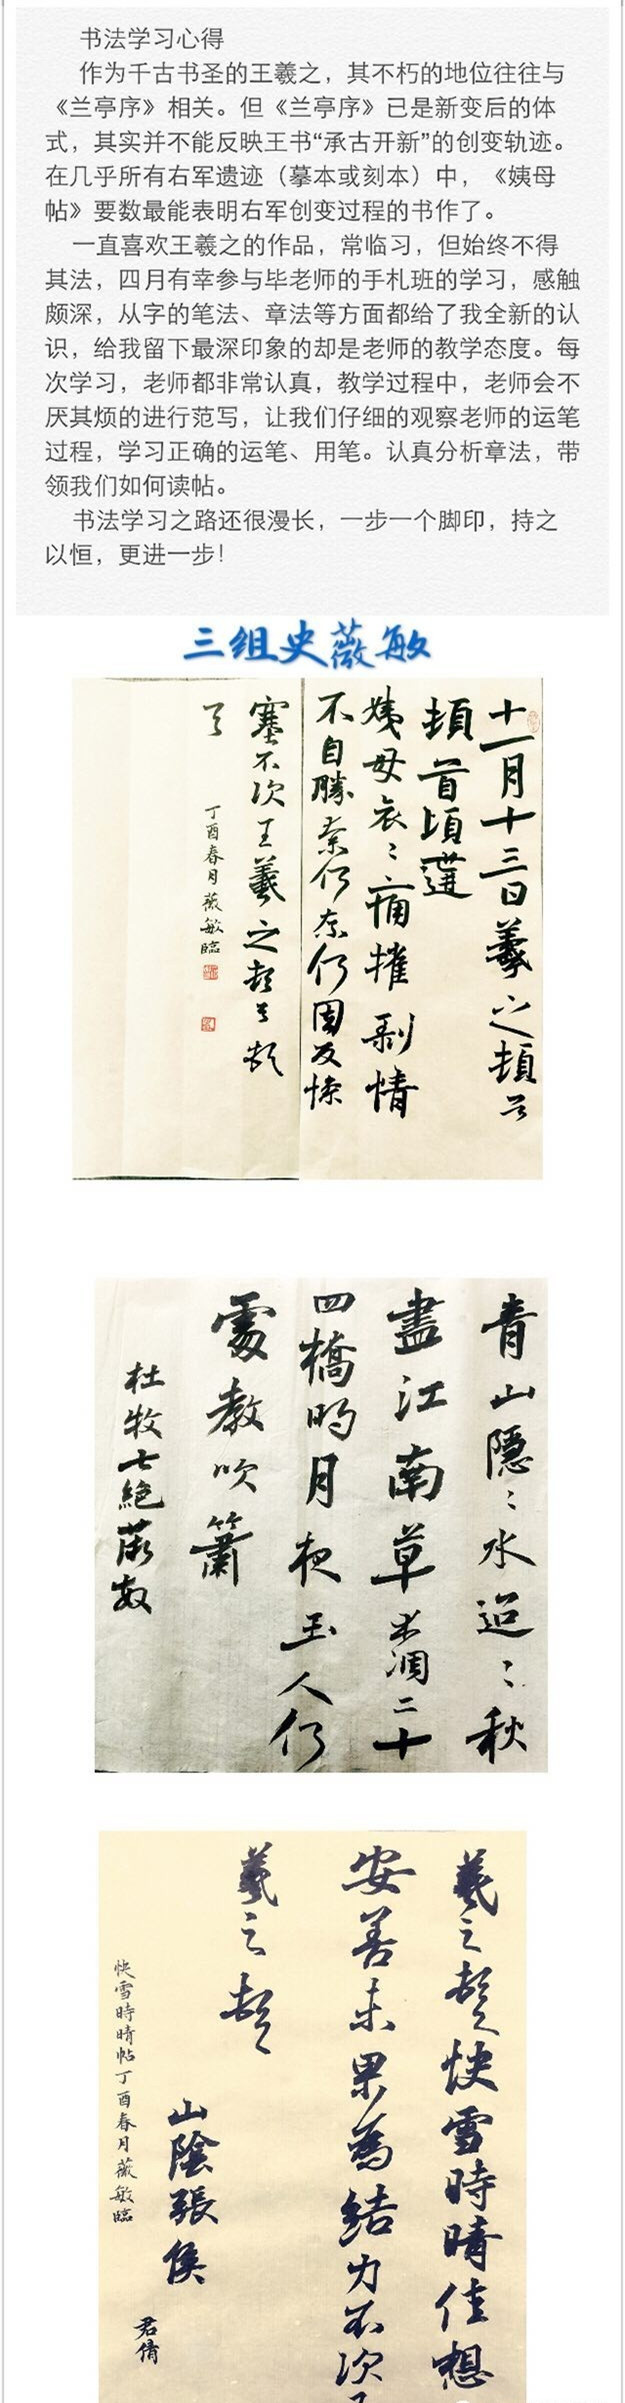 书法学习心得
作为千古书圣的王羲之，其不朽的地位往往与
《兰亭序》相关。但《兰亭序》已是新变后的体
式，其实并不能反映王书“承古开新”的创变轨迹。
在几乎所有右军遗迹（摹本或刻本）中，《姨母
帖》要数最能表明右军创变过程的书作了。
一直喜欢王羲之的作品，常临习，但始终不得
其法，四月有幸参与毕老师的手札班的学习，感触
颇深，从字的笔法、章法等方面都给了我全新的认
识，给我留下最深印象的却是老师的教学态度。每
次学习，老师都非常认真，教学过程中，老师会不
厌其烦的进行范写，让我们仔细的观察老师的运笔
过程，学习正确的运笔、用笔。认真分析章法，带
领我们如何读帖。
书法学习之路还很漫长，一步一个脚印，持之
以恒，更进一步！
三组史薇敏
十一月十三日羲之頓首
頓首頃遘
姨母哀哀痛摧剥情
不自勝奈何奈何因反慘
塞不次王羲之頓首頓
首
丁酉春月薇敏臨
青山隱隱水迢迢秋
盡江南草未凋二十
四橋明月夜玉人何
處教吹簫
杜牧七絕薇敏
羲之頓首快雪時晴佳想
安善未果為結力不次王
羲之頓首
山陰張侯
君倩
快雪時晴帖丁酉春月薇敏臨